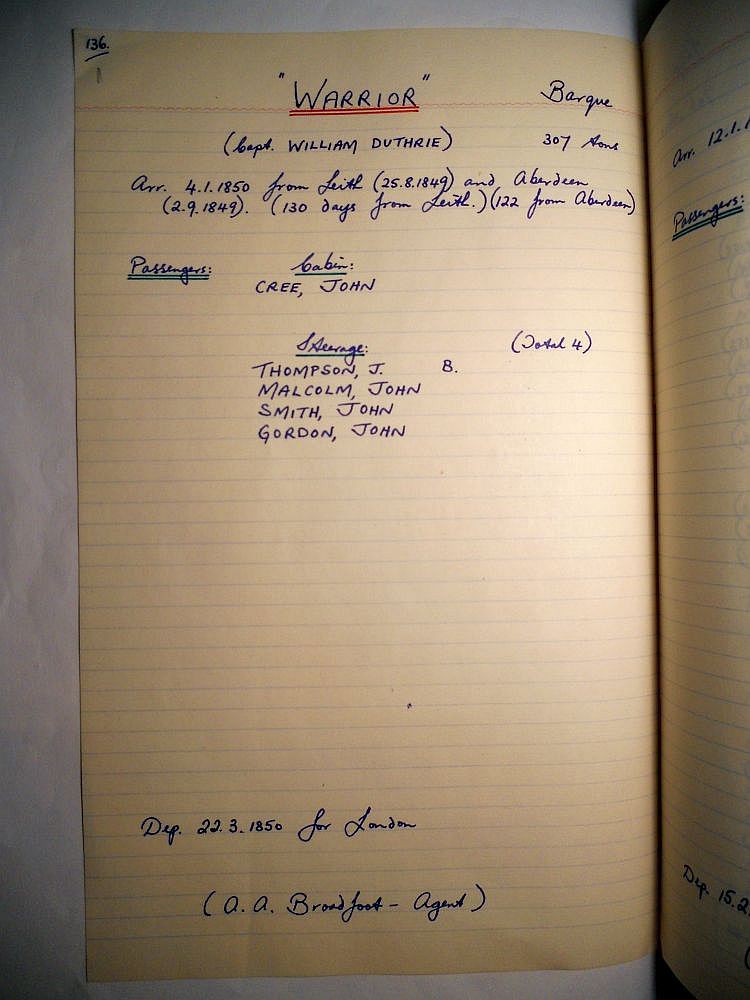 136.
"WARRIOR" Barque
(Capt. WILLIAM DUTHRIE) 307 tons
Arr. 4.1.1850 from Leith (25.8.1849) and Aberdeen
(2.9.1849). (130 days from Leith.) (122 from Aberdeen)
Passengers: Cabin:
CREE, JOHN
Steerage: (Total 4)
THOMPSON, J. B.
MALCOLM, JOHN
SMITH, JOHN
GORDON, JOHN
Dep. 22.3.1850 for London
(A. A. Broadfoot - Agent)
Arr. 12.1.
Passengers:
Dep. 15.2